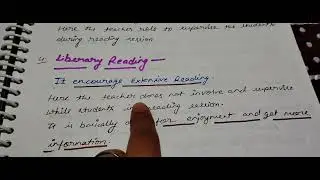 Here the teacher role to supervise the students
during reading session
4. Liberary Reading —
It encourage Extensive Reading.
Here the teacher does not involve and supervise
while students in reading session.
It is basically for enjoyment and get more
information.